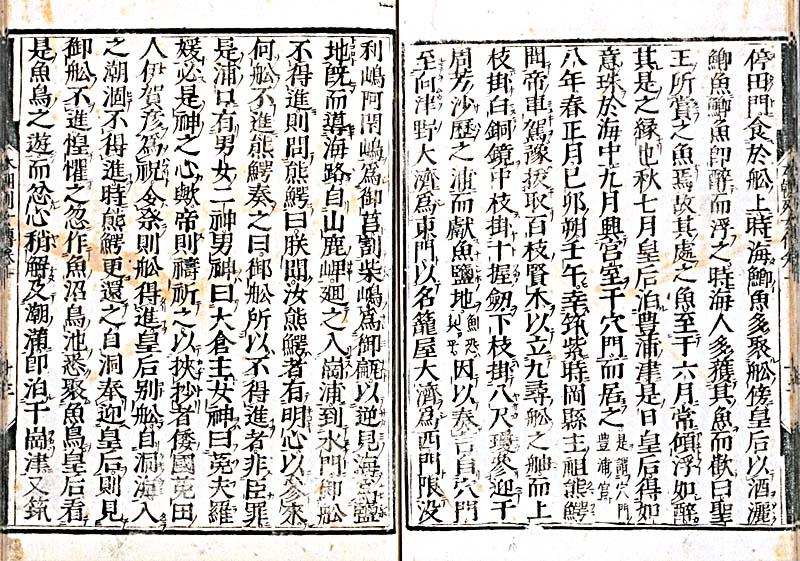 停田門食於舩上時海鯽魚多聚舩傍皇后以酒灑
鯽魚鯽魚即醉而浮之時海人多獲其魚而歡曰聖
王所賞之魚焉故其處之魚至于六月常傾浮如醉
其是之緣也秋七月皇后泊豊浦津是日皇后得如
意珠於海中九月興宮室于穴門而居之是謂穴門豊浦宮
八年春正月己卯朔壬午幸筑紫時岡縣主祖熊鰐
聞帝車駕豫拔取百枝賢木以立九尋舩之舳而上
枝掛白銅鏡中枝掛十握劔下枝掛八尺瓊參迎于
周芳沙歴之浦而獻魚鹽地魚恐因以奏言自穴門
至向津野大濟爲東門以名籠屋大濟爲西門限没
利嶋阿閇嶋爲御莒割柴嶋爲御甂以逆見海爲鹽
地既而導海路自山鹿岬廻之入崗浦到水門御舩
不得進則問熊鰐曰朕聞汝熊鰐者有明心以參來
何舩不進熊鰐奏之曰御舩所以不得進者非臣罪
是浦口有男女二神男神曰大倉主女神曰菟夫羅
媛必是神之心歟帝則禱祈之以挾抄者倭國菟田
人伊賀彦爲祝令祭則舩得進皇后別舩自洞海入
之潮涸不得進時熊鰐更還之自洞奉迎皇后則見
御舩不進惶懼之忽作魚沼鳥池悉聚魚鳥皇后看
是魚鳥之遊而忿心稍解及潮滿即泊于崗津又筑